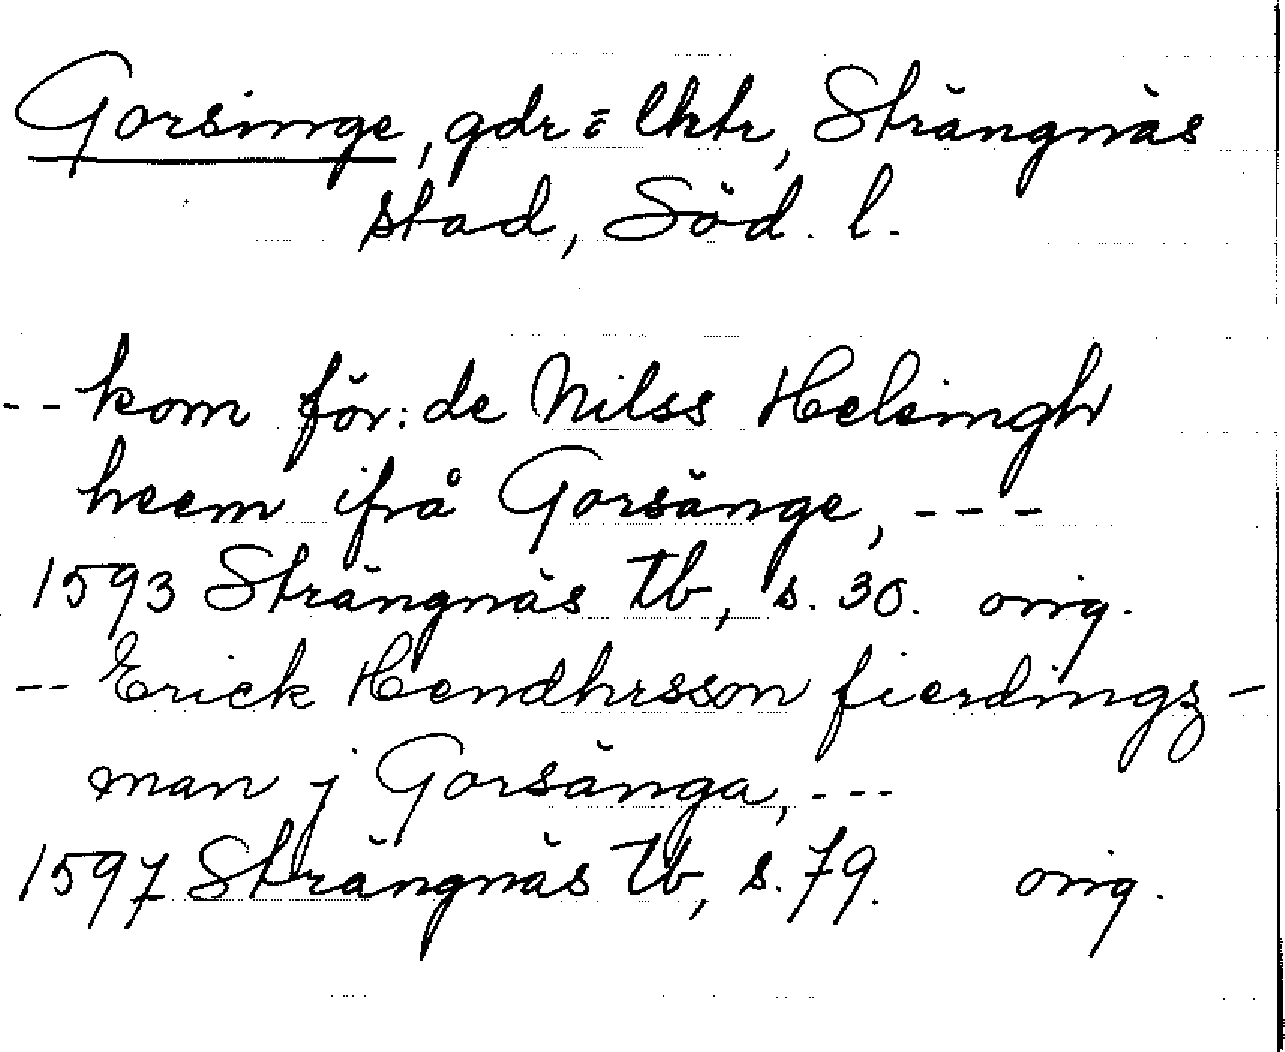 Gorsinge, gdr o lhtr, Strängnäs
stad, Söd. l.
-- kom för: de Nilss Helsingh
heem ifrå Gorsänge, ---
1593 Strängnäs tb, s. 30. orig.
-- Erick Hendhrsson fierdingz-
man j Gorsänga, ---
1597 Strängnäs tb, s. 79. orig.